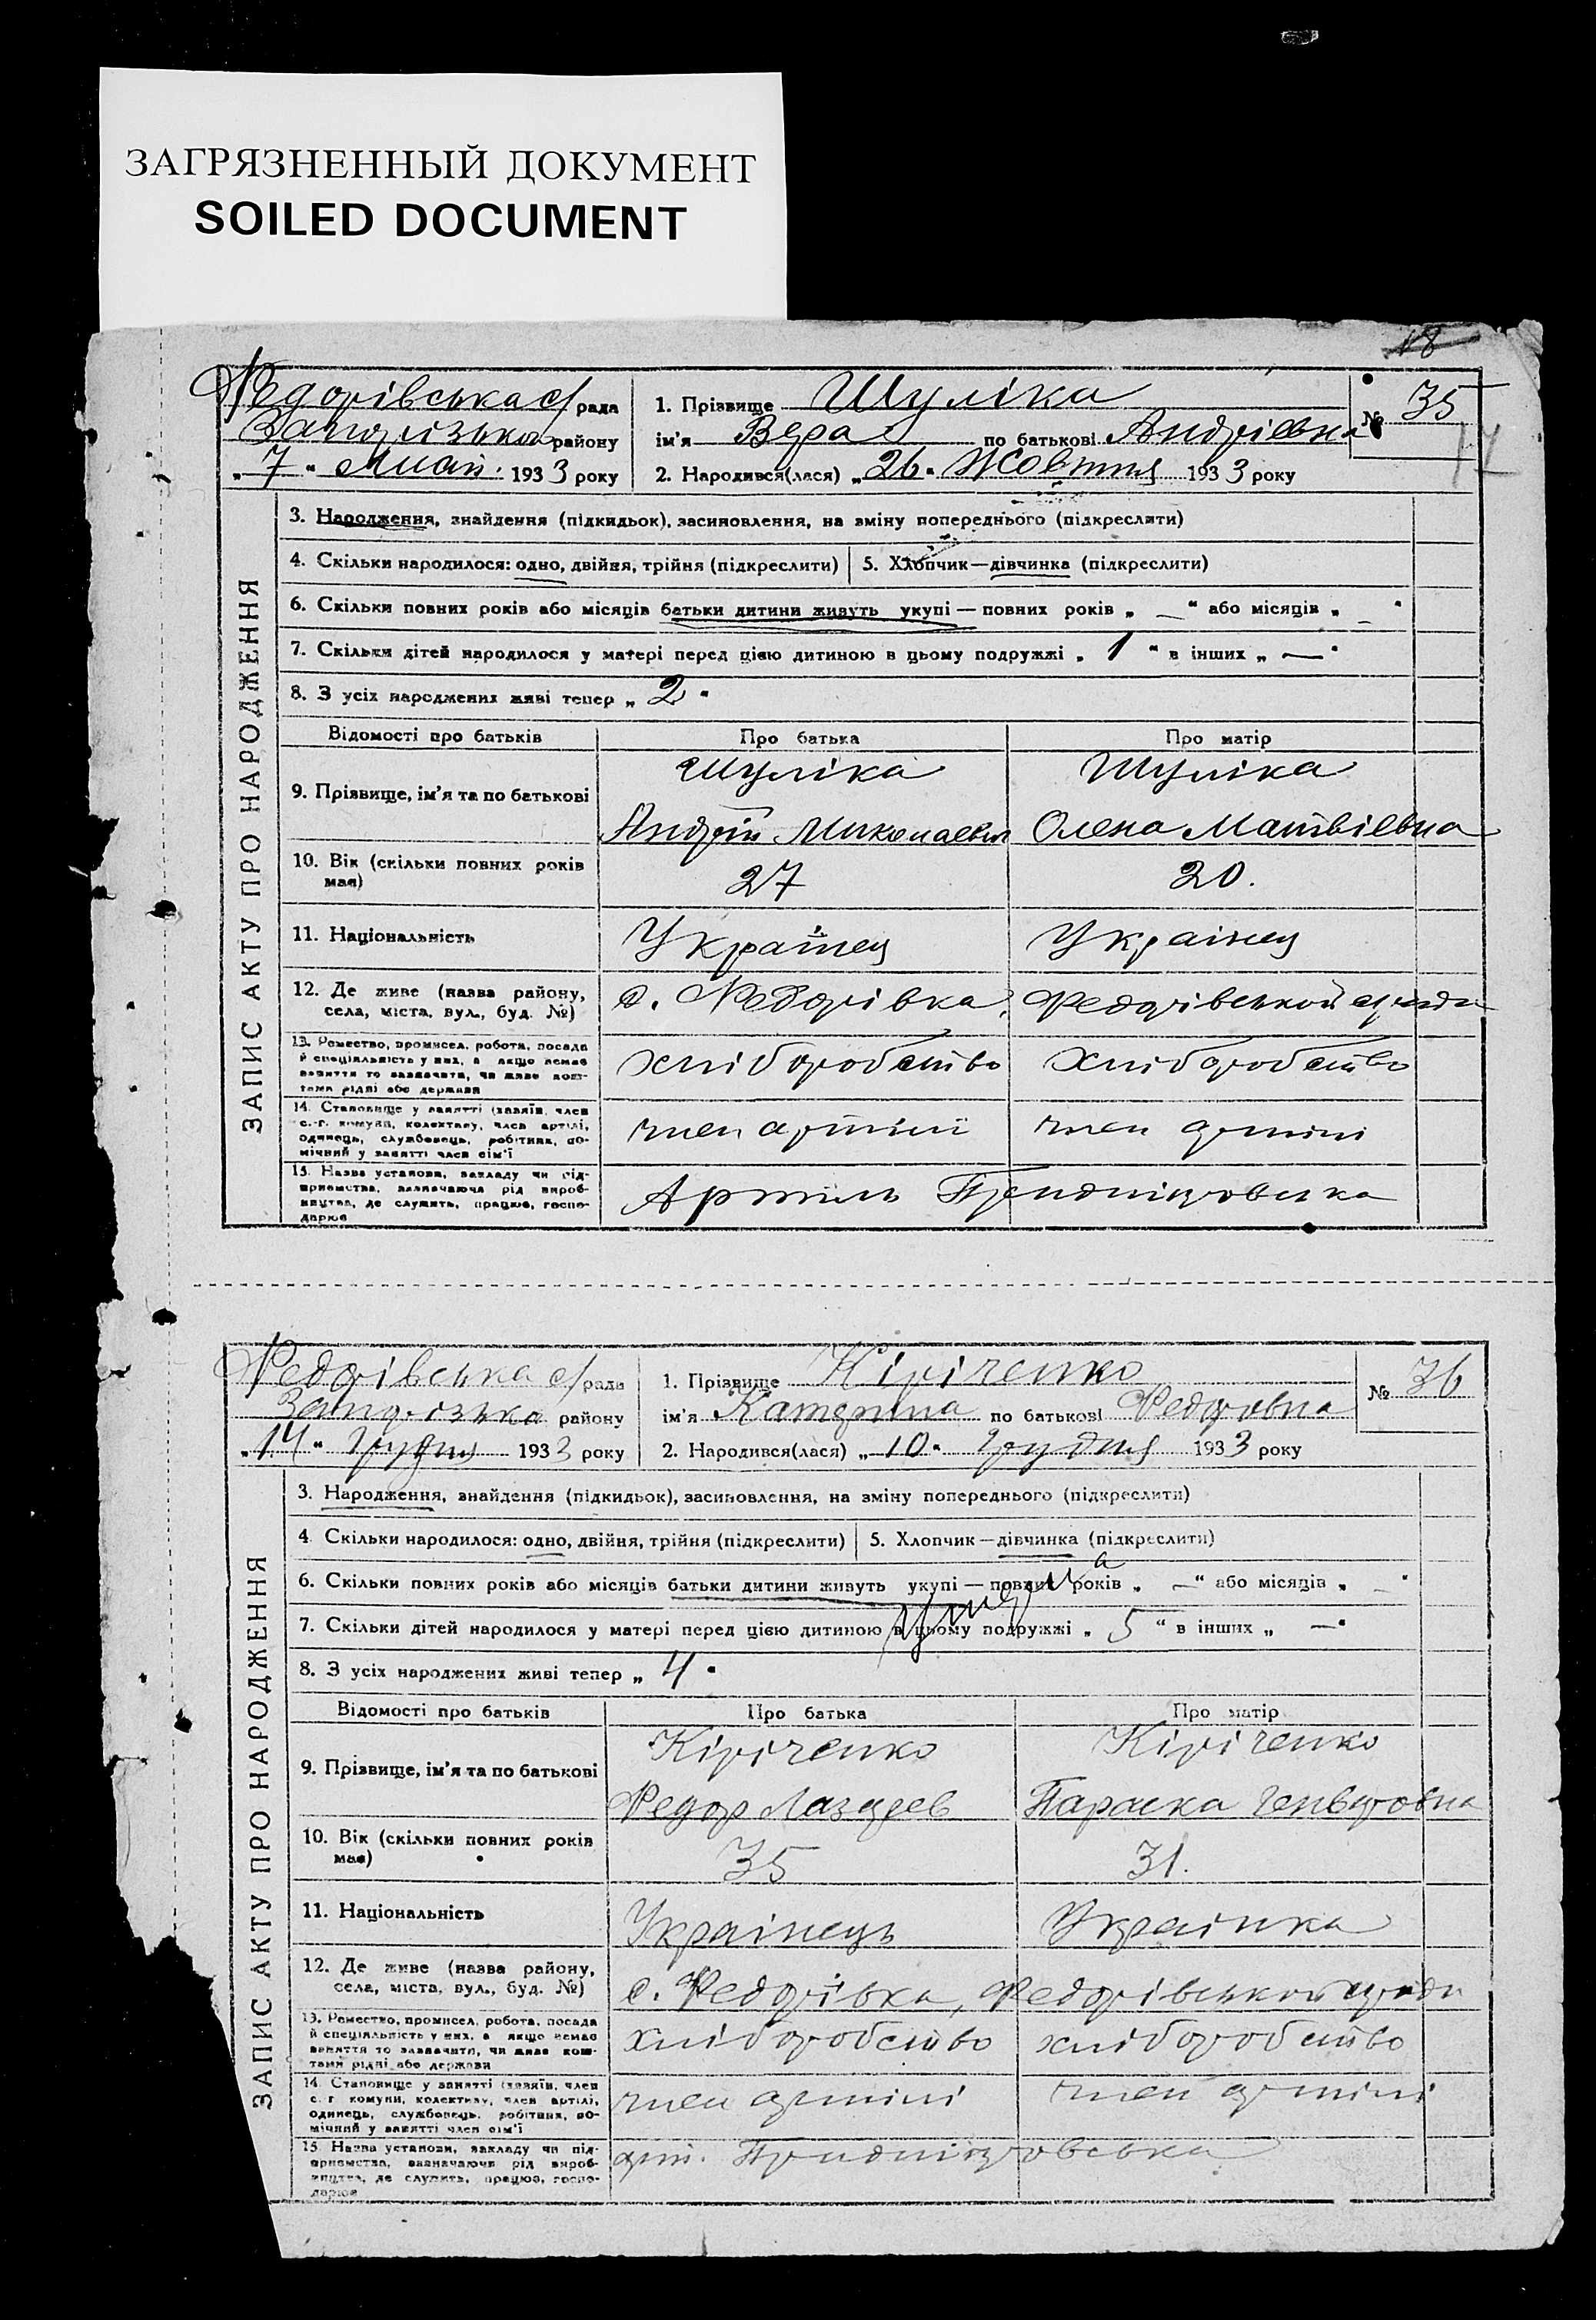 ЗАГРЯЗНЕННЫЙ ДОКУМЕНТ
SOILED DOCUMENT
18
Федорівська с/рада
Запорізька району
„ 7 “ 1933 року
1. Прізвище Шуліка
№ 35
ім'я Вера по батькові Андріевна
2. Народився(лася) „ 26 “ Жовтня 1933 року
ЗАПИС АКТУ ПРО НАРОДЖЕННЯ
3. Народження, знайдення (підкидьок), засиновлення, на зміну попереднього (підкреслити)
4. Скільки народилося: одно, двійня, трійня (підкреслити) 5. Хлопчик—дівчинка (підкреслити)
6. Скільки повних років або місяців батьки дитини живуть укупі — повних років „ — “ або місяців „ — “
7. Скільки дітей народилося у матері перед цією дитиною в цьому подружжі „ 1 “ в інших „ — “
8. З усіх народжених живі тепер „ 2 “
Відомості про батьків Про батька Про матір
9. Прізвище, ім'я та по батькові
Шуліка Шуліка
Андрій Миколаевич Олена Матвіевна
10. Вік (скільки повних років має)
27 20.
11. Національність Украінец Украінец
12. Де живе (назва району, села, міста, вул., буд. №)
с. Федорівка, Федорівськой с/ради
13. Ремество, промисел, робота, посада й спеціальність у них, а якщо немає заняття то зазначити, чи живе коштами рідні або держави
хліборобство хліборобство
14. Становище у занятті (хазяїн, член с.-г. комуни, колективу, член артілі, одинець, службовець, робітник, помічний у занятті член сім'ї
член артілі член артілі
15. Назва установи, закладу чи підприємства, зазначаючи рід виробництва, де служить, працює, господарює
Артиль Придніпровська
Федорівська с/рада
Запорізька району
„ 14 “ Грудня 1933 року
1. Прізвище Кіріченко
№ 36
ім'я Катерина по батькові Федоровна
2. Народився(лася) „ 10 “ Грудня 1933 року
ЗАПИС АКТУ ПРО НАРОДЖЕННЯ
3. Народження, знайдення (підкидьок), засиновлення, на зміну попереднього (підкреслити)
4 Скільки народилося: одно, двійня, трійня (підкреслити) 5. Хлопчик—дівчинка (підкреслити)
6. Скільки повних років або місяців батьки дитини живуть укупі — повних років „ — “ або місяців „ — “
умерла
7. Скільки дітей народилося у матері перед цією дитиною в цьому подружжі „ 5 “ в інших „ — “
8. З усіх народжених живі тепер „ 4 “
Відомості про батьків Про батька Про матір
9. Прізвище, ім'я та по батькові
Кіріченко Кіріченко
Федор Лазарев Параска
10. Вік (скільки повних років має)
35 31.
11. Національність Украінець Украінка
12. Де живе (назва району, села, міста, вул., буд. №)
с. Федорівка, Федорівськой с/ради
13. Ремество, промисел, робота, посада й спеціальність у них, а якщо немає заняття то зазначити, чи живе коштами рідні або держави
хліборобство хліборобство
14. Становище у занятті (хазяїн, член с.-г. комуни, колективу, член артілі, одинець, службовець, робітник, помічний у занятті член сім'ї
член артілі член артілі
15. Назва установи, закладу чи підприємства, зазначаючи рід виробництва, де служить, працює, господарює
арт. Придніпровська